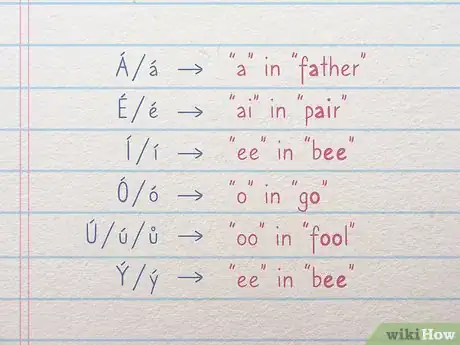 Á/á → "a" in "father"
É/é → "ai" in "pair"
Í/í → "ee" in "bee"
Ó/ó → "o" in "go"
Ú/ú/ů → "oo" in "fool"
Ý/ý → "ee" in "bee"
wikiHow